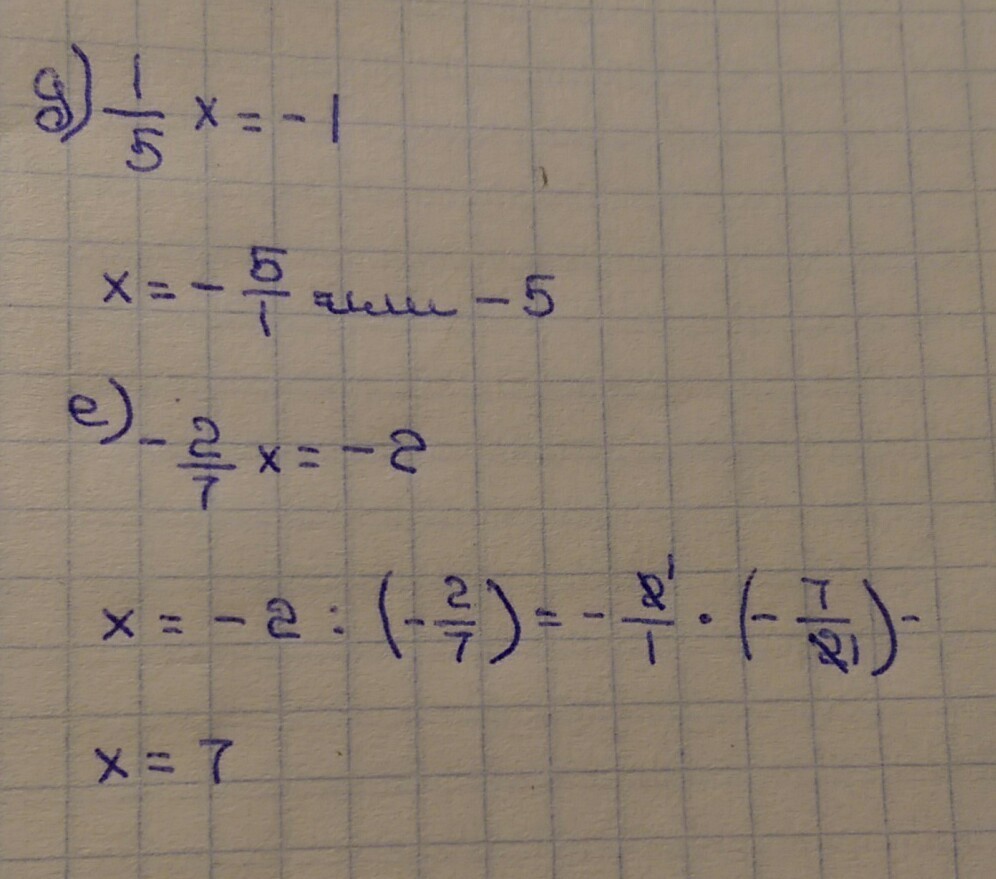 д) 1/5 x = - 1
x = - 5/1 или - 5
е) - 2/7 x = - 2
x = - 2 : (- 2/7) = - 2̸¹/1 · (- 7/2̸1) -
x = 7